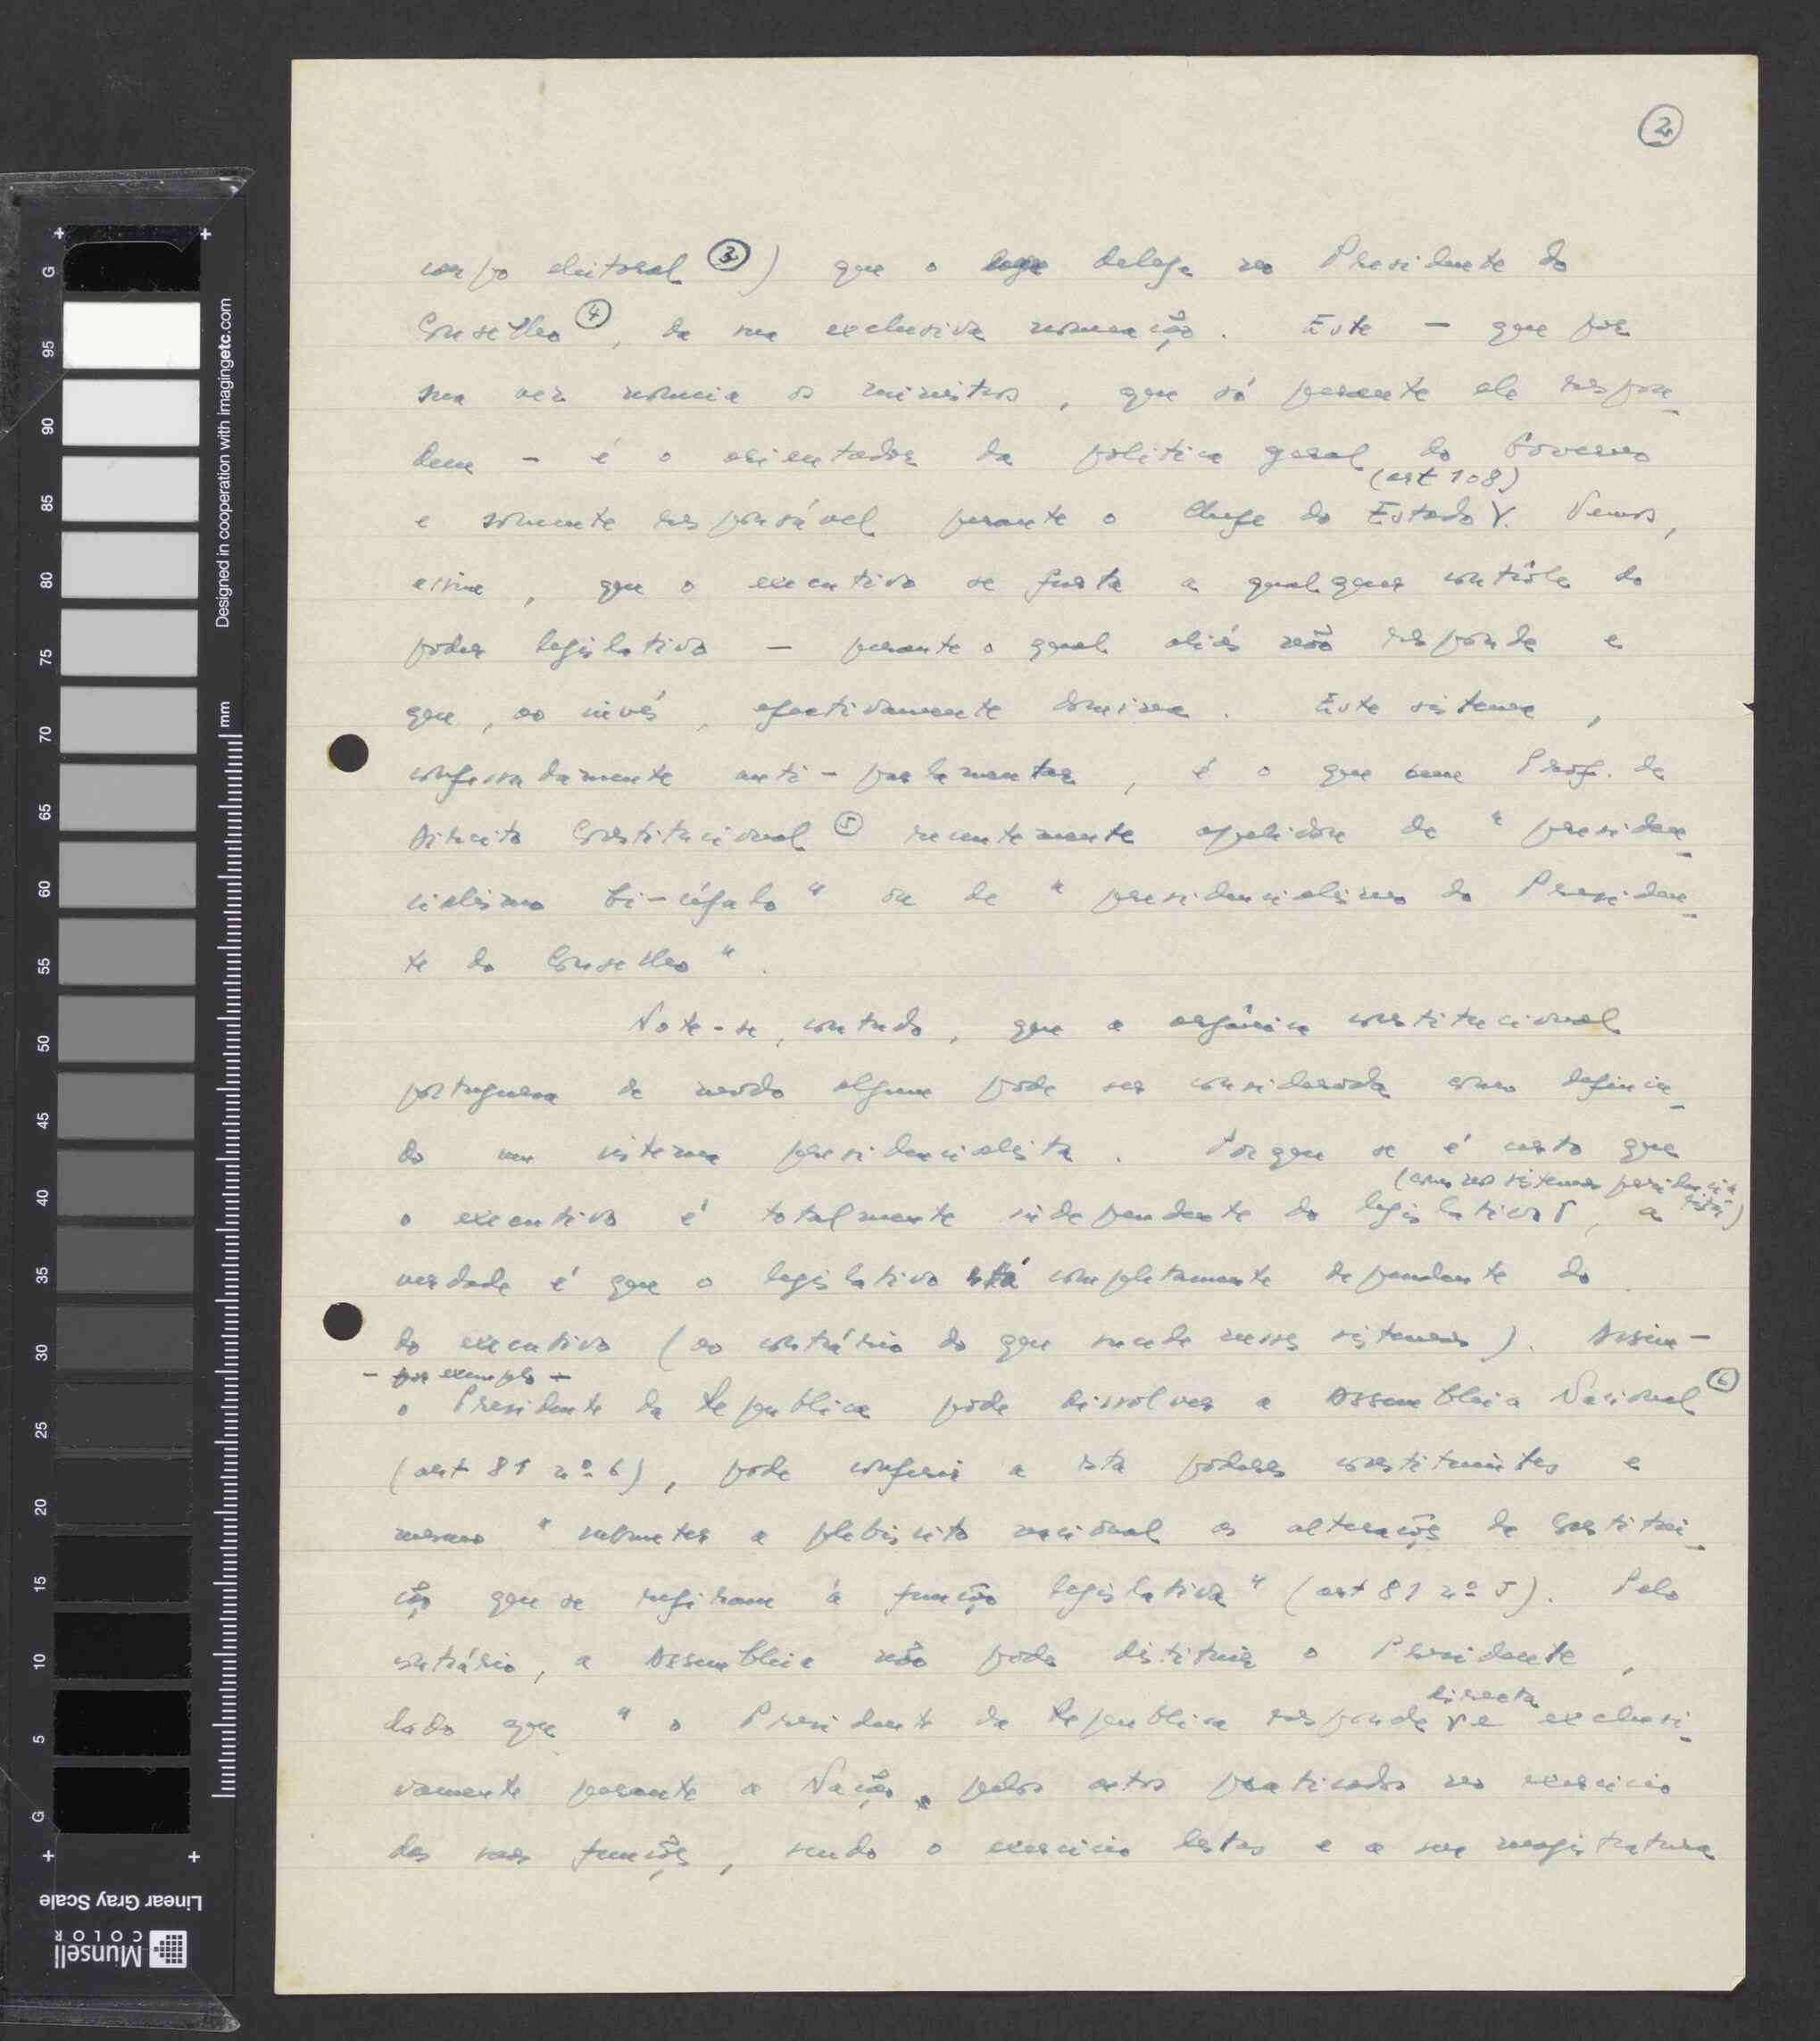 2
corpo eleitoral (3) ) que o delega no Presidente do
Conselho (4), de sua exclusiva nomeação. Este - que por
sua vez nomeia os ministros, que só perante ele respon-
dem - é o orientador da politica geral do Governo
(art 108)
e somente responsável perante o Chefe do Estado. Vemos,
assim, que o executivo se furta a qualquer contrôle do
poder legislativo - perante o qual aliás não responde e
que, ao invés, efectivamente domina. Este sistema,
confessadamente anti-parlamentar, é o que um Prof. de
Direito Constitucional (5) recentemente apelidou de "presiden-
cialismo bi-céfalo" ou de "presidencialismo do Presiden-
te do Conselho".
Note-se, contudo, que a orgânica constitucional
portuguesa de modo algum pode ser considerada como definin-
do um sistema presidencialista. Porque se é certo que
(como nos sistemas presidencia-
listas)
o executivo é totalmente independente do legislativo, a
verdade é que o legislativo está completamente dependente do
do executivo (ao contrário do que sucede nesses sistemas). Assim -
- por exemplo -
o Presidente da Republica pode dissolver a Assembleia Nacional (6)
(art 81 nº 6), pode conferir a esta poderes constituintes e
mesmo "submeter a plebiscito nacional as alterações da Constitui-
ção que se refiram à função legislativa" (art 81 nº 5). Pelo
contrário, a Assembleia não pode destituir o Presidente,
directa
dado que "o Presidente da Republica responde e exclusi-
vamente perante a Nação pelos actos praticados no exercicio
das suas funções, sendo o exercicio destas e a sua magistratura
G
95
90
85
80
75
70
65
60
55
50
45
40
35
30
25
20
15
10
5
G
Designed in cooperation with imagingetc.com
mm
Linear Gray Scale
Munsell
COLOR